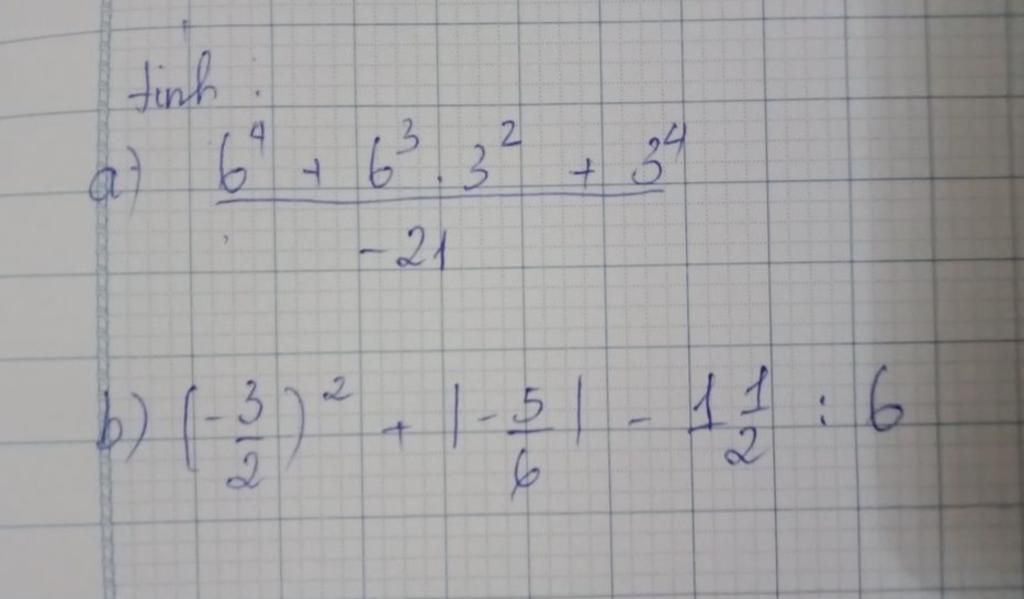 tính :
a) 6⁴ + 6³ . 3² + 3⁴
- 21
b) (- 3/2)² + |- 5/6| - 1 1/2 : 6